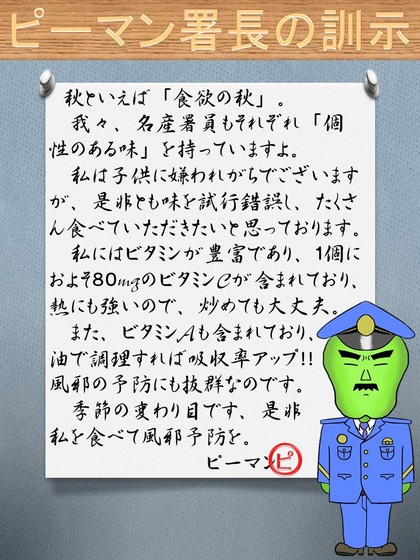 ピーマン署長の訓示
秋といえば「食欲の秋」。
我々、名産署員もそれぞれ「個
性のある味」を持っていますよ。
私は子供に嫌われがちでございます
が、是非とも味を試行錯誤し、たくさ
ん食べていただきたいと思っております。
私にはビタミンが豊富であり、1個に
およそ80mgのビタミンCが含まれており、
熱にも強いので、炒めても大丈夫。
また、ビタミンAも含まれており、
油で調理すれば吸収率アップ!!
風邪の予防にも抜群なのです。
季節の変わり目です、是非
私を食べて風邪予防を。
ピーマン ピ